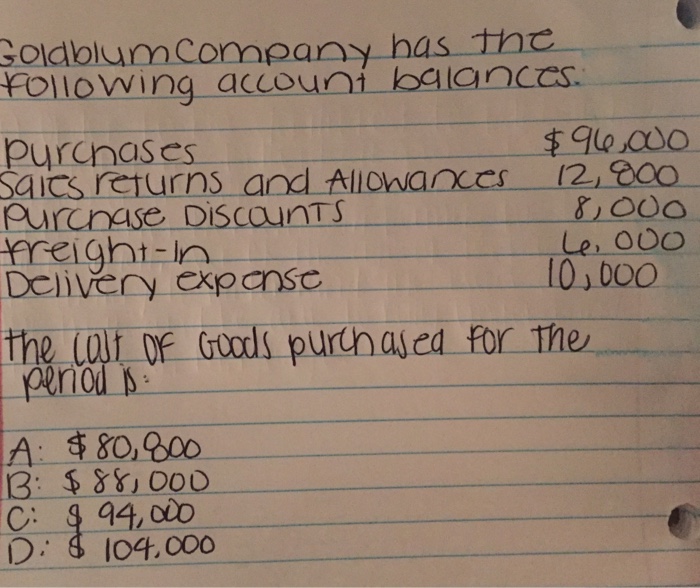 Goldblum Company has the
following account balances:
purchases $96,000
Sales returns and Allowances 12,800
Purchase Discounts 8,000
freight-In 6,000
Delivery expense 10,000
The Cost of Goods purchased for the
period is:
A: $80,800
B: $88,000
C: $94,000
D: $104,000